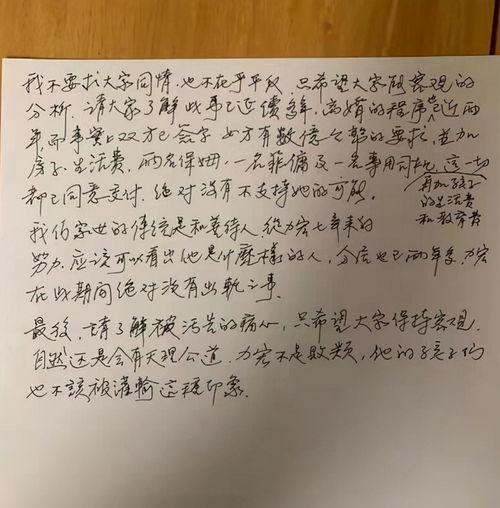 我不要找大家同情,也不在乎平反,只希望大家能客观的
分析.請大家了解此事已延續多年,离婚的程序也近两
年,而事實上双方已簽字 女方有数億台幣的要求,並加
房子.生活費,两名保姆,一名菲傭及一名專用司机,這一切
再加孩子
的生活费
和教育费
都已同意交付.絕对没有不支持她的可能.
我们家世的傳統是和善待人,從力宏七年来的
努力.應該可以看出他是什麼樣的人,分居也已两年多.力宏
在此期间絕对没有出軌之事.
最後,請了解被污告的痛心,只希望大家保持客观.
自然还是会有天理公道.力宏不是敗類,他的孩子们
也不該被灌輸這種印象.